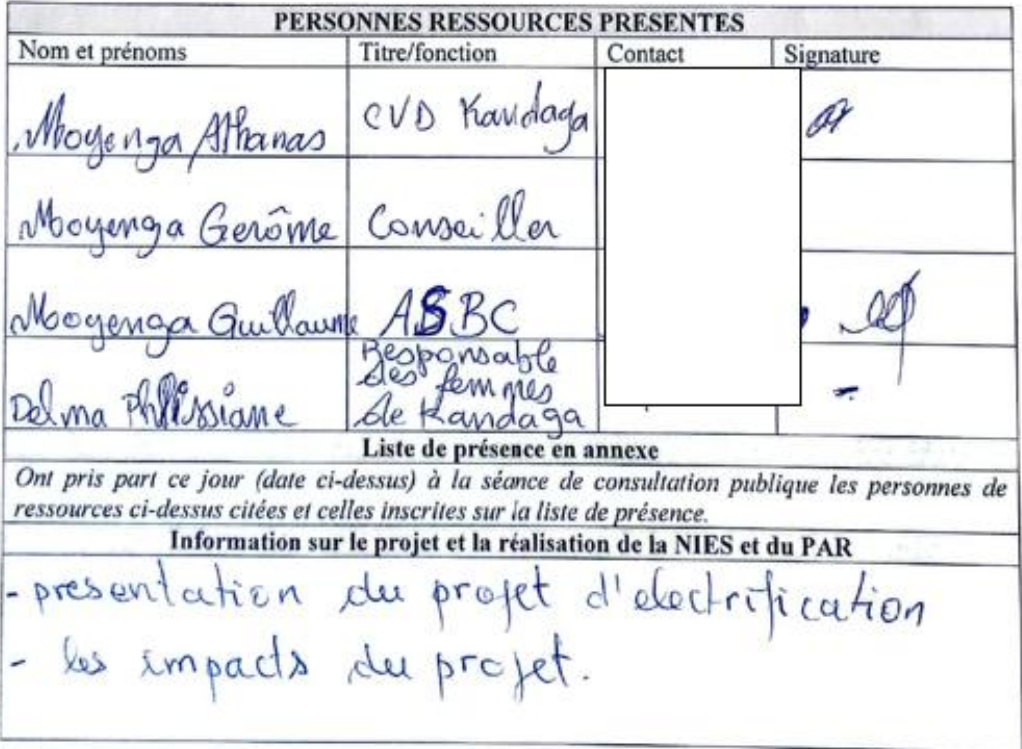 PERSONNES RESSOURCES PRESENTES
Nom et prénoms Titre/fonction Contact Signature
Moyenga Athanas CVD Kandaga
Moyenga Gerôme Conseiller
Moyenga Guillaume ASBC
Delma Responsable
des femmes
de Kandaga
Liste de présence en annexe
Ont pris part ce jour (date ci-dessus) à la séance de consultation publique les personnes de
ressources ci-dessus citées et celles inscrites sur la liste de présence.
Information sur le projet et la réalisation de la NIES et du PAR
- presentation du projet d'electrification
- les impacts du projet.